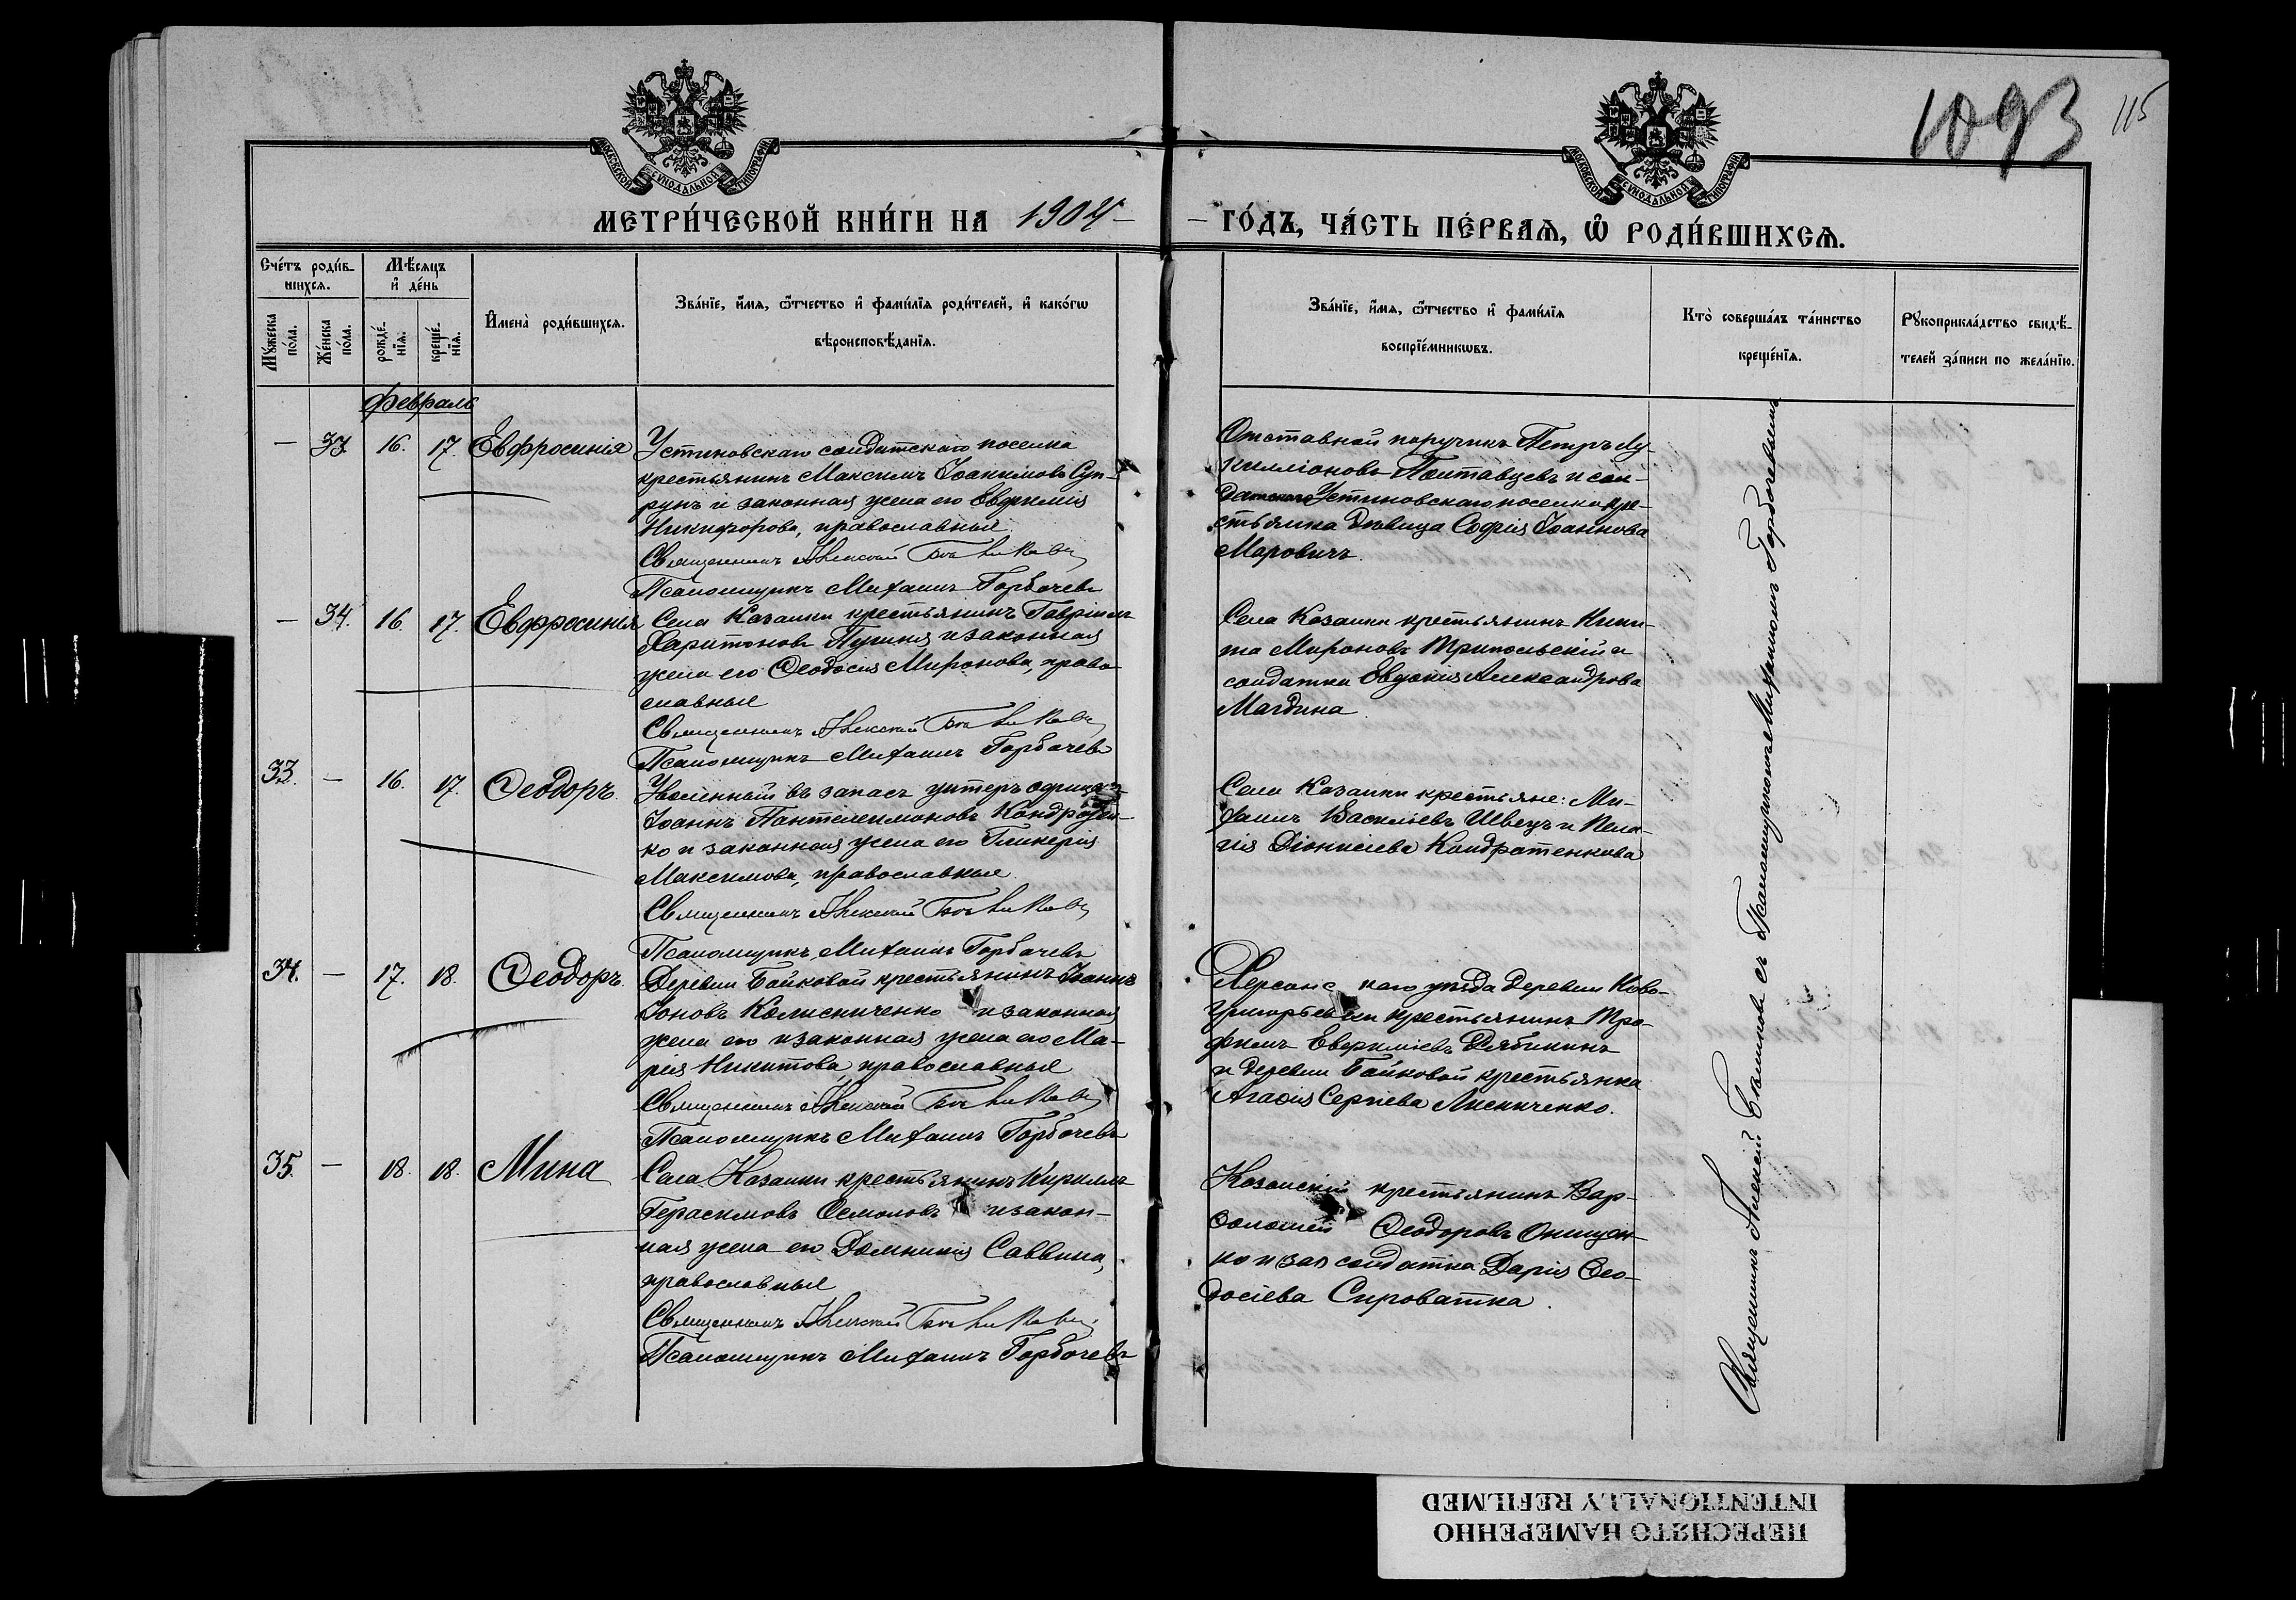 1093 115
МОСКОВСКОЙ СѴНОДАЛЬНОЙ ТИПОГРАФІИ
МОСКОВСКОЙ СѴНОДАЛЬНОЙ ТИПОГРАФІИ
МЕТРИ́ЧЕСКОЙ КНИ́ГИ НА 1904
ГО́ДЪ, ЧА́СТЬ ПЕ́РВАЯ, Ѡ҆ РОДИ́ВШИХСЯ.
Сче́тъ роди́в-
шихся.
Мꙋ́жеска по́ла.
Же́нска по́ла.
Мѣ́сяцъ и҆ де́нь
рожде́-нїя.
креще́-нїя.
И҆мена̀ роди́вшихся.
Зва́нїе, и҆́мя, ѻ҆́тчество и҆ фами́лїя роди́телей, и҆ како́гѡ
вѣроисповѣ́данїя.
Зва́нїе, и҆́мя, ѻ҆́тчество и҆ фами́лїя
воспрїе́мникѡвъ.
Кто̀ соверша́лъ та́инство
креще́нїя.
Рꙋкоприкла́дство свидѣ́-
телей за́писи по жела́нїю.
Февраль
— 33 16. 17. Евфросинія
Устиновскаго солдатскаго поселка
крестьянинъ Максимъ Іоакимовъ Суп-
рунъ и законная жена его Евфимія
Никифорова, православные
Священникъ Алексей
Псаломщикъ Михаилъ Горбачевъ
Отставной поручикъ Петръ Лу-
килліоновъ Полтавцевъ и сол-
датскаго Устиновскаго поселка кре-
стьянка девица Софія Іоаннова
Марович
— 34. 16. 17. Евфросинія
Села Казанки крестьянинъ Гавріилъ
Харитоновъ и законная
жена его Ѳеодосія Миронова, право-
славные
Священникъ Алексей
Псаломщикъ Михаилъ Горбачевъ
Села Казанки крестьянинъ Ники-
та Мироновъ Трипольскій и
солдатка Евдокія Александрова
Магдина
33. — 16. 17. Ѳеодоръ.
Уволенный въ запасъ унтеръ офицеръ
Іоаннъ Пантелеимоновъ Кондратен-
ко и законная жена его Гликерія
Максимова, православные
Священникъ Алексей
Псаломщикъ Михаилъ Горбачевъ
Села Казанки крестьяне: Ми-
хаилъ Василіевъ Швецъ и Пела-
гія Діонисіева Кондратенкова
34. — 17. 18. Ѳеодоръ.
Деревни Байковой крестьянинъ Іоаннъ
Іоновъ Колисниченко и законная
жена его и законная жена его Ма-
рія Никитова, православные
Священникъ Алексей
Псаломщикъ Михаилъ Горбачевъ
Херсонскаго уезда деревни Ново-
григорьевки крестьянинъ Тро-
фимъ Евфиміевъ Дябикинъ
и деревни Байковой крестьянка
Агафія Сергіева Лисниченко.
35. — 18. 18. Мина
Села Казанки крестьянинъ Кириллъ
Герасимовъ Осмоловъ и закон-
ная жена его Домникія Саввина,
православные
Священникъ Алексей
Псаломщикъ Михаилъ Горбачевъ
Казанскій крестьянинъ Вар-
ѳоломей Ѳеодоровъ Онищен-
ко и зап солдатка Дарія Ѳео-
досіева Сироватка.
Священникъ Алексей съ Псаломщикомъ Михаиломъ Горбачевымъ
ПЕРЕСНЯТО НАМЕРЕННО
INTENTIONALLY REFILMED